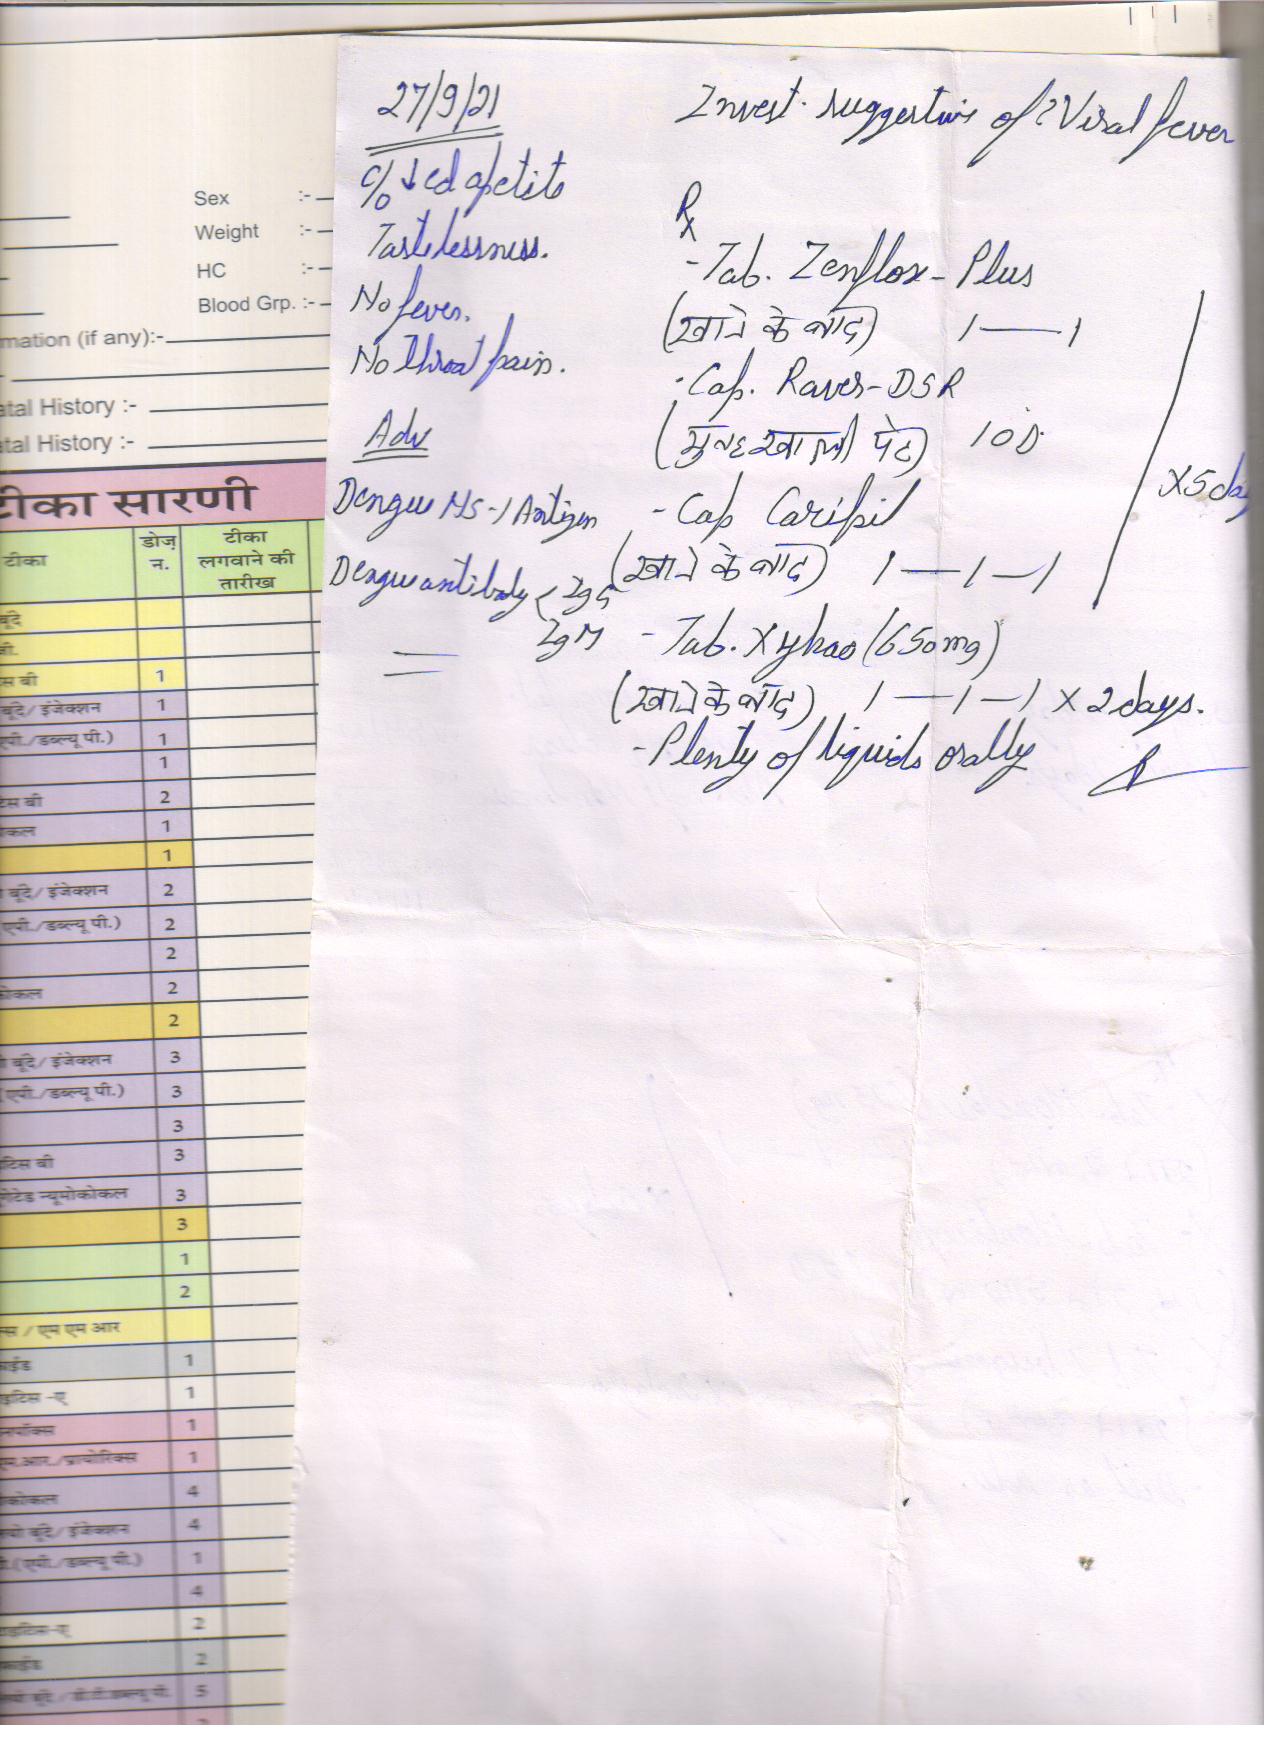 27/9/21
c/o ↓ed apetite
Tastelessness.
No fever.
No throat pain.
Adv
Dengue NS-1 Antigen
Dengue antibody < IgG
IgM
Invest. suggestive of ? Viral fever
Rx
- Tab. Zenflox - Plus
(खाने के बाद) 1 — 1
- Cap. Raves-DSR
(सुबह खाली पेट) 1 OD
- Cap Caripil
(खाने के बाद) 1 — 1 — 1
x 5 day
- Tab. (650mg)
(खाने के बाद) 1 — 1 — 1 x 2 days.
- Plenty of liquids orally
Sex :-
Weight :-
HC :-
Blood Grp. :-
mation (if any):-
atal History :-
atal History :-
टीका सारणी
टीका डोज़ न. टीका लगवाने की तारीख
बूंदे
बी.
स बी 1
बूंदे/ इंजेक्शन 1
एपी./डब्ल्यू पी.) 1
1
टिस बी 2
कल 1
1
बूंदे/ इंजेक्शन 2
(एपी./डब्ल्यू पी.) 2
2
कोकल 2
2
बूंदे/ इंजेक्शन 3
(एपी./डब्ल्यू पी.) 3
3
टिस बी 3
गेटेड न्यूमोकोकल 3
3
1
2
ल्स / एम एम आर
फाईड 1
इटिस -ए 1
नपॉक्स 1
एम.आर./प्रायोरिक्स 1
कोकल 4
यो बूंदे/ इंजेक्शन 4
टी.(एपी./डब्ल्यू पी.) 1
4
टाइटिस-ए 2
फाईड 2
यो बूंदे/ डी.टी.डब्ल्यू पी. 5